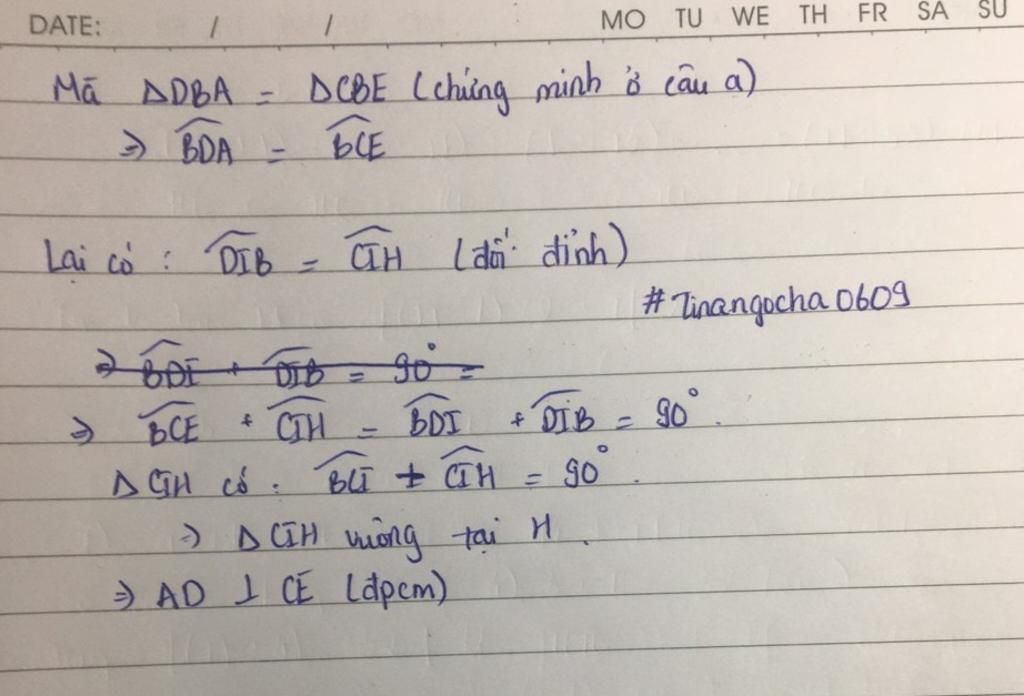 DATE: / / MO TU WE TH FR SA SU
Mà ΔDBA = ΔCBE (chứng minh ở câu a)
⇒ \widehat{BDA} = \widehat{BCE}
Lại có : \widehat{DIB} = \widehat{CIH} (đối đỉnh)
#Tinangocha0609
⇒ \widehat{BDI} + \widehat{DIB} = 90° =
⇒ \widehat{BCE} + \widehat{CIH} = \widehat{BDI} + \widehat{DIB} = 90°.
Δ CIH có : \widehat{BCI} + \widehat{CIH} = 90°.
⇒ Δ CIH vuông tại H.
⇒ AD ⊥ CE (đpcm)